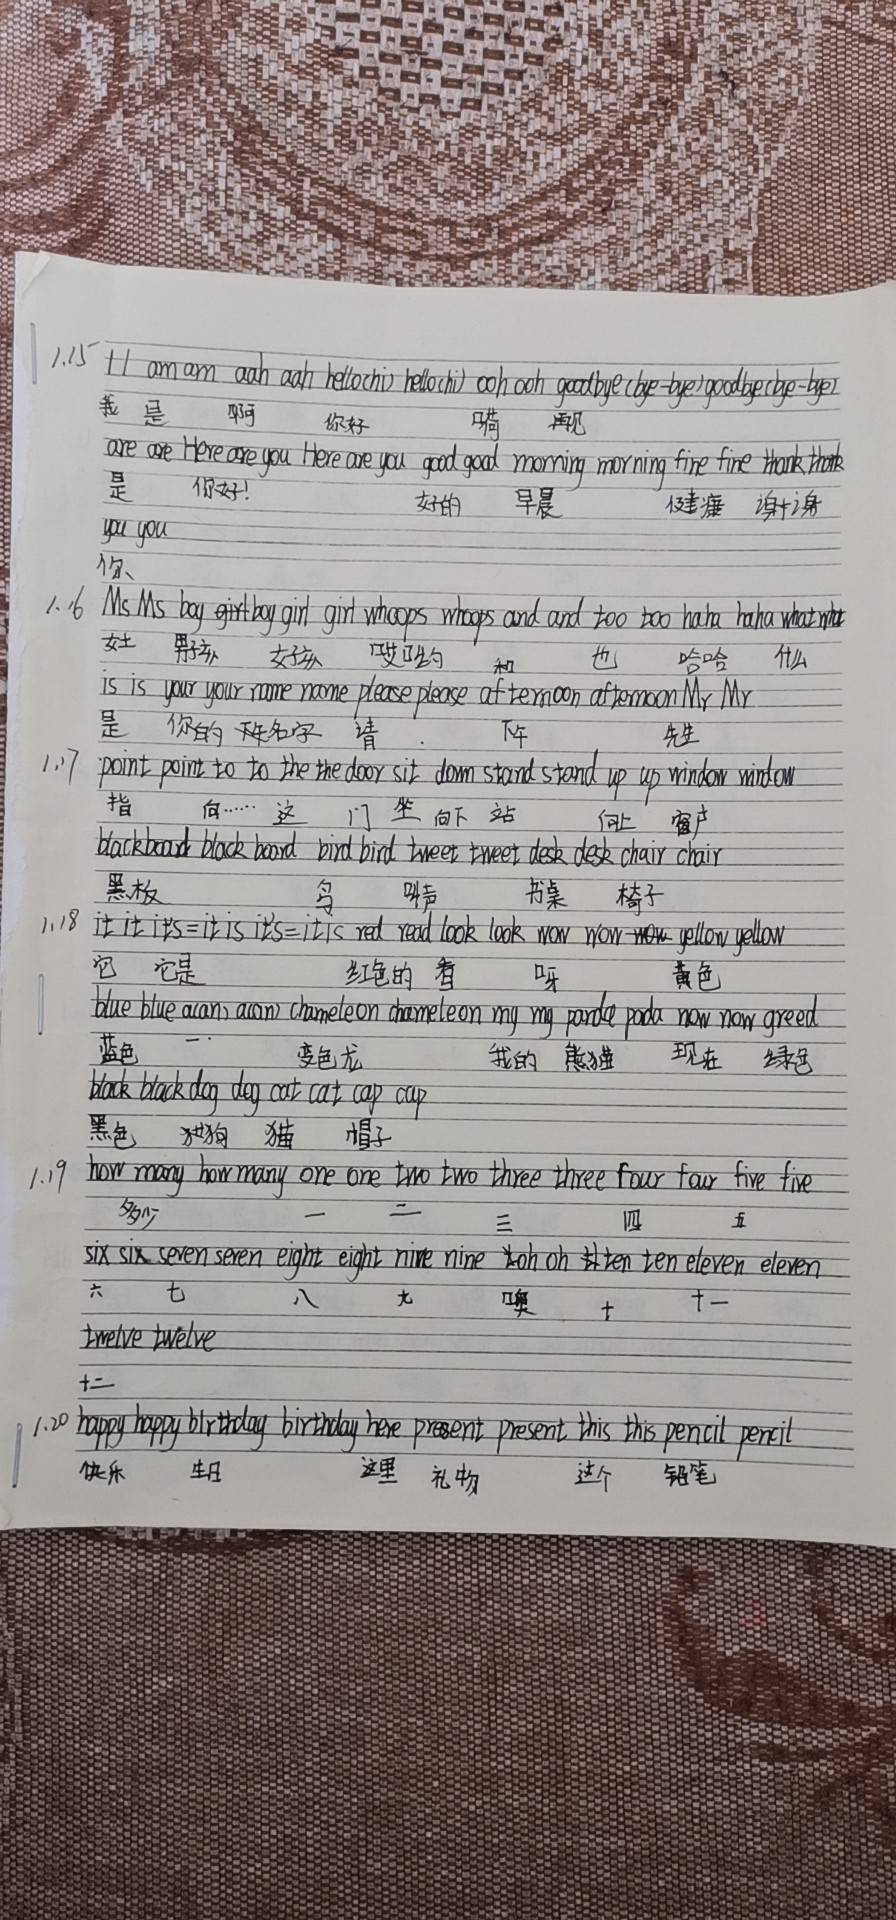 1.15 I I am am aah aah hello(hi) hello(hi) ooh ooh goodbye(bye-bye) goodbye(bye-bye)
我 是 啊 你好 嗬 再见
are are Here are you Here are you good good morning morning fine fine thank thank
是 你好! 好的 早晨 健康 谢谢
you you
你、
1.16 Ms Ms boy girl boy girl girl whoops whoops and and too too haha haha what what
女士 男孩 女孩 哎哟 和 也 哈哈 什么
is is your your name name please please afternoon afternoon Mr Mr
是 你的 名字 请 下午 先生
1.17 point point to to the the door sit down stand stand up up window window
指 向…… 这 门 坐 向下 站 向上 窗户
blackboard blackboard bird bird tweet tweet desk desk chair chair
黑板 鸟 叫声 书桌 椅子
1.18 it it it's=it is it's=it is red read look look wow wow wow yellow yellow
它 它是 红色的 看 呀 黄色
blue blue a(an) a(an) chameleon chameleon my my panda pada now now greed
蓝色 一 变色龙 我的 熊猫 现在 绿色
black black dog dog cat cat cap cap
黑色 狗 猫 帽子
1.19 how many how many one one two two three three four four five five
多少 一 二 三 四 五
six six seven seven eight eight nine nine oh oh ten ten eleven eleven
六 七 八 九 噢 十 十一
twelve twelve
十二
1.20 happy happy birthday birthday here present present this this pencil pencil
快乐 生日 这里 礼物 这个 铅笔